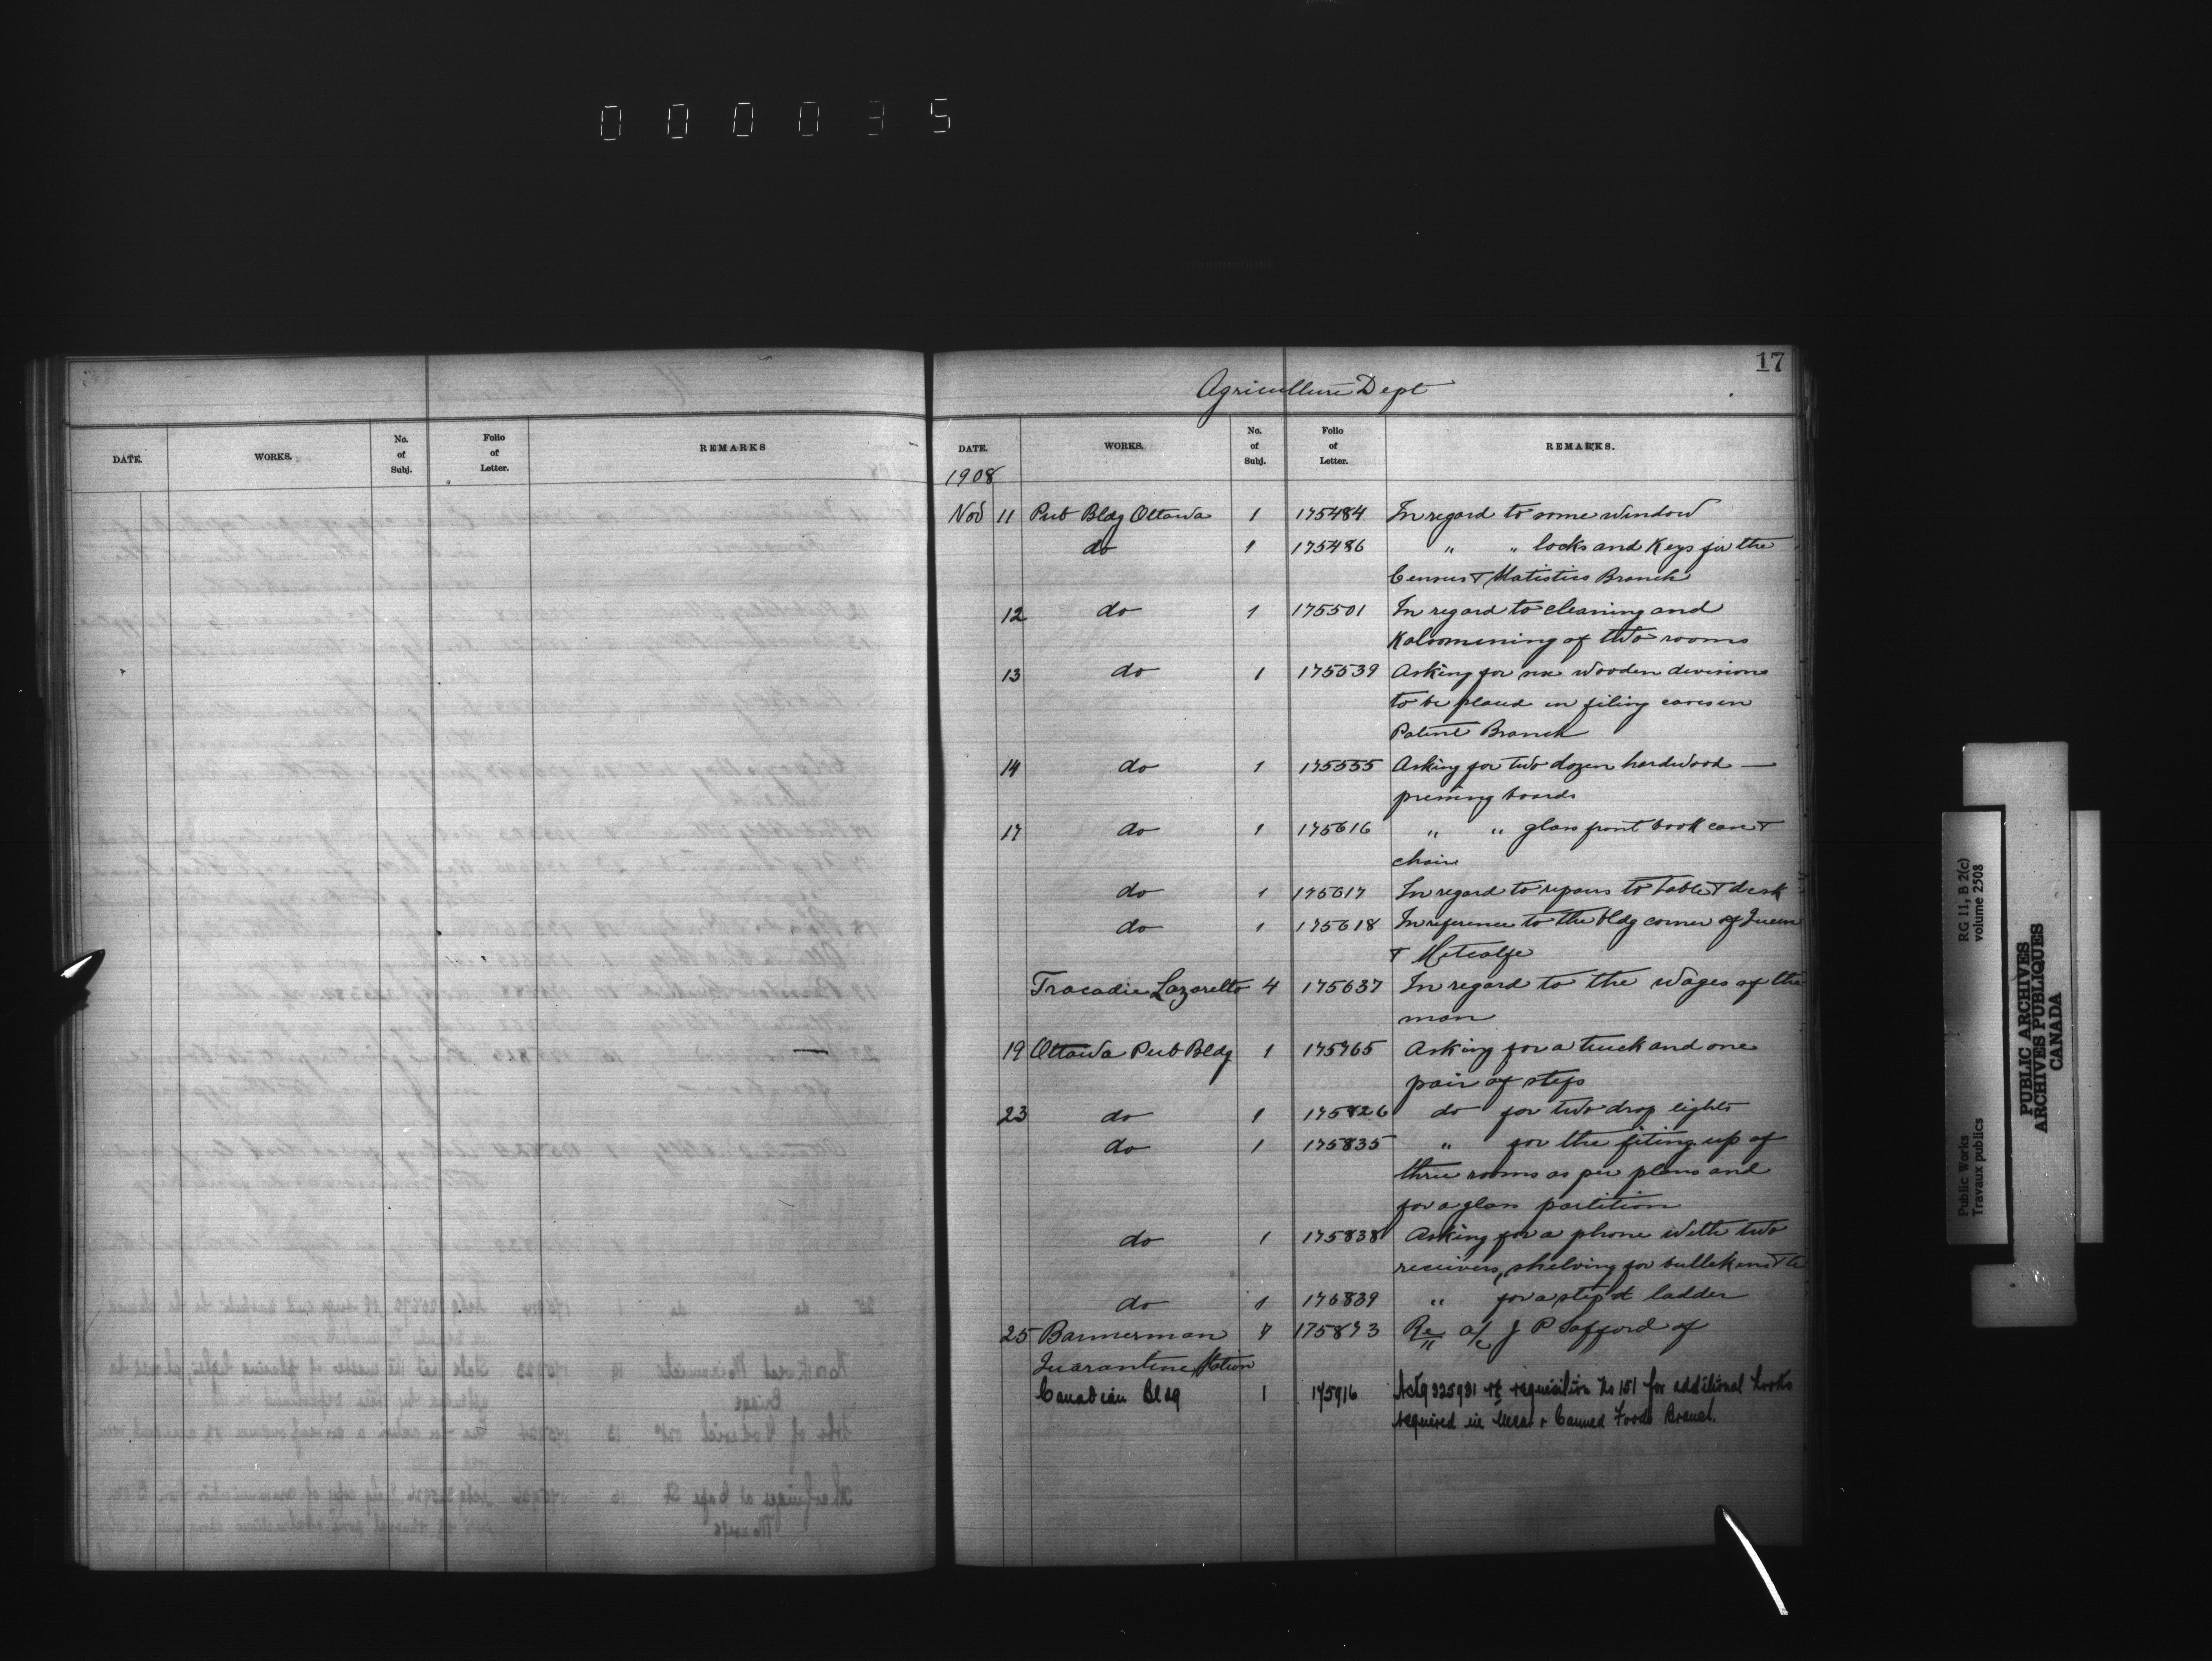 000035
17
Agriculture Dept
DATE. WORKS. No. of Subj. Folio of Letter. REMARKS
DATE. WORKS. No. of Subj. Folio of Letter. REMARKS.
1908
Nov 11 Pub Bldg Ottawa 1 175484 In regard to some window
do 1 175486 " " locks and Keys for the
Census & Statistics Branch
12 do 1 175501 In regard to cleaning and
Kalsomining of two rooms
13 do 1 175539 Asking for six wooden divisions
to be placed in filing cases in
Patent Branch
14 do 1 175555 Asking for two dozen hardwood —
pressing boards
17 do 1 175616 " " glass front book case &
chair
do 1 175617 In regard to repairs to table & desk
do 1 175618 In reference to the bldg corner of Queen
& Metcalfe
Tracadie Lazaretto 4 175637 In regard to the wages of the
man
19 Ottawa Pub Bldg 1 175765 Asking for a truck and one
pair of steps
23 do 1 175826 do for two drop lights
do 1 175835 " for the fiting up of
three rooms as per plans and
for a glass partition
do 1 175838 Asking for a phone with two
receivers, shelving for
do 1 175839 " for a step ladder
25 Bannerman 7 175873 Re a/c J P Safford of
Quarantine Station
Canadian Bldg 1 175916 Ackg 325931 re requisition No 151 for additional
required in Meat & Canned Foods Branch.
PUBLIC ARCHIVES
ARCHIVES PUBLIQUES
CANADA
Public Works
Travaux publics
RG 11, B 2(c)
volume 2508